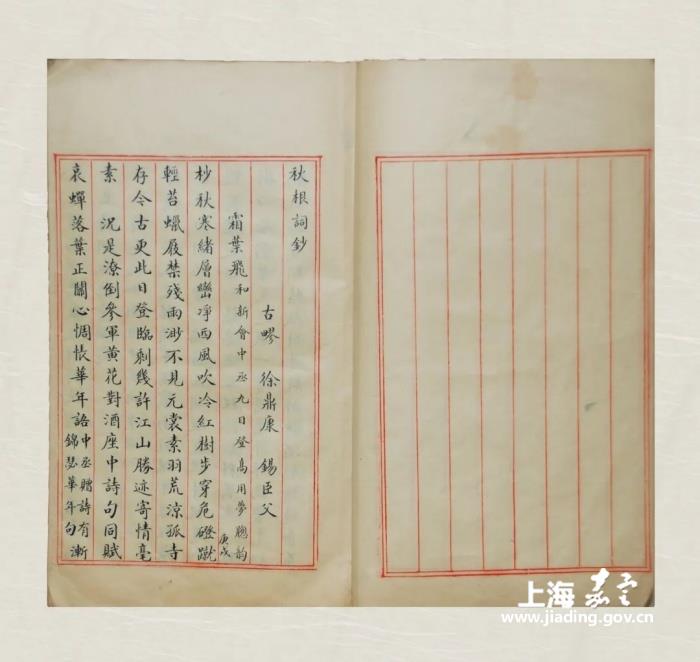 秋根詞鈔
古疁 徐鼎康 錫臣父
霜葉飛 和新會中丞九日登高用夢牕韵 庚戌
杪秋寒緒層巒凈西風吹冷紅樹步穿危磴蹴
輕苔蠟屐禁殘雨渺不見元裳素羽荒涼孤寺
存今古更此日登臨剩幾許江山勝迹寄情毫
素 況是潦倒參軍黃花對酒座中詩句同賦
哀蟬落葉正關心惆悵華年語 中丞贈詩有漸
錦瑟華年句
上海嘉定
www.jiading.gov.cn